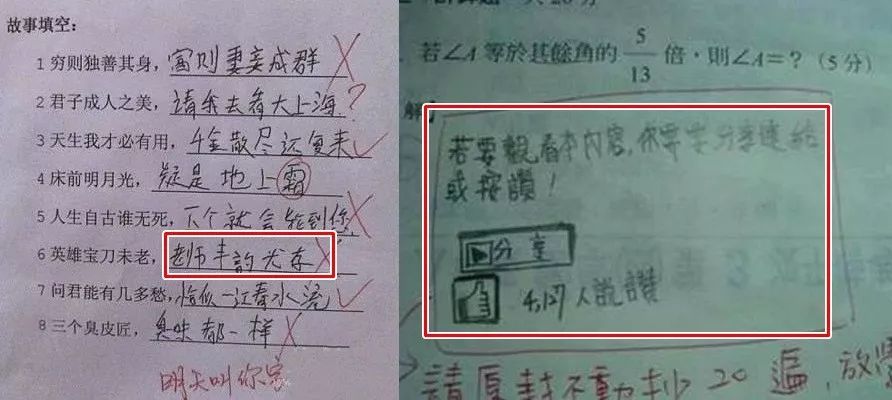 故事填空：
1 穷则独善其身，富则妻妾成群
2 君子成人之美，请你去看大上海?
3 天生我才必有用，千金散尽还复来
4 床前明月光，疑是地上霜
5 人生自古谁无死，下个就会轮到你
6 英雄宝刀未老，老师丰韵犹存
7 问君能有几多愁，恰似一江春水流
8 三个臭皮匠，臭味都一样
明天叫你家
若∠A 等於其餘角的 5/13 倍，則∠A=？（5 分）
解：
若要觀看本內容，你要先分享連結
或按讚！
分享
4,127 人說讚
請原封不動抄 20 遍，放學